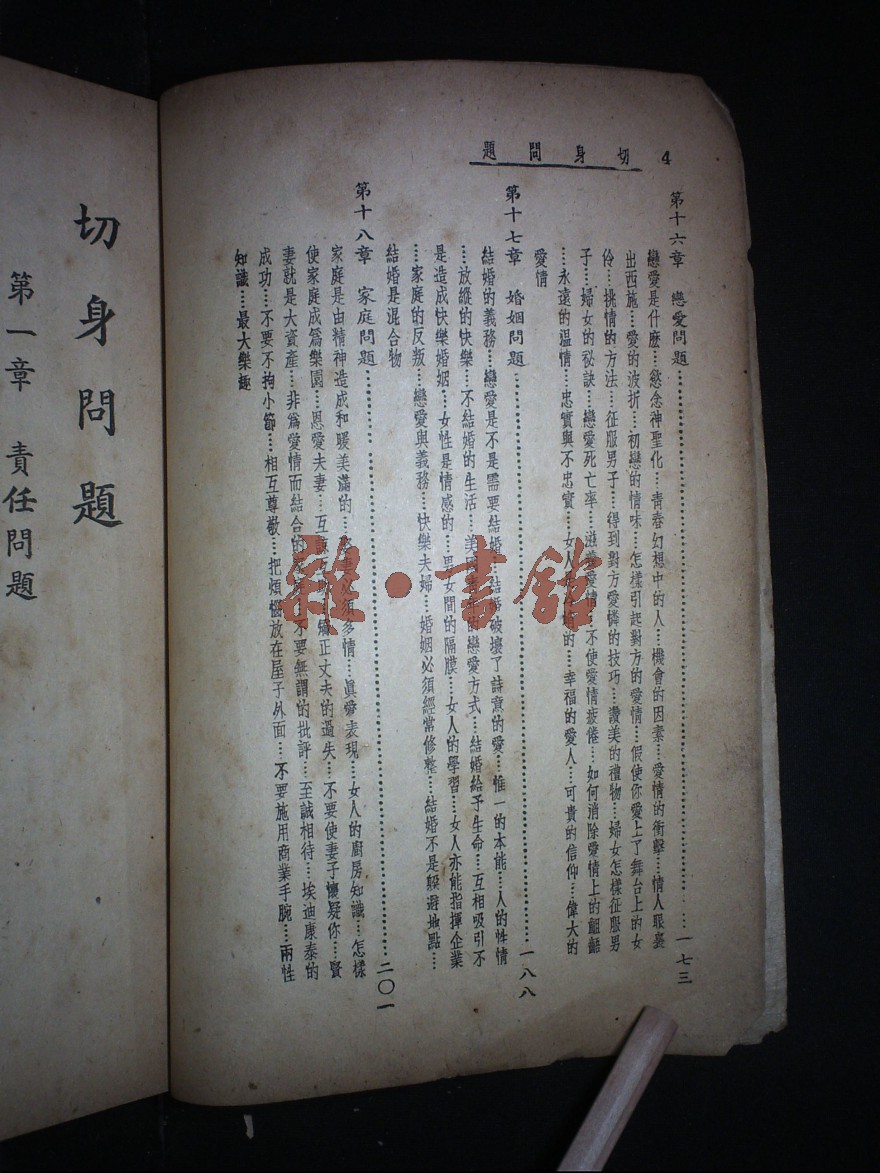 4 切身問題
第十六章 戀愛問題……一七三
戀愛是什麽…慾念神聖化…青春幻想中的人…機會的因素…愛情的衝擊…情人眼裏
出西施…愛的波折…初戀的情味…怎樣引起對方的愛情…假使你愛上了舞台上的女
伶…挑情的方法…征服男子…得到對方愛憐的技巧…讚美的禮物…婦女怎樣征服男
子…婦女的秘訣…戀愛死亡率…滋養愛情…不使愛情疲倦…如何消除愛情上的齟齬
…永遠的溫情…忠實與不忠實…女人是 的…幸福的愛人…可貴的信仰…偉大的
愛情
第十七章 婚姻問題……一八八
結婚的義務…戀愛是不是需要結婚…結婚破壞了詩意的愛…惟一的本能…人的性情
…放縱的快樂…不結婚的生活…美國 的戀愛方式…結婚給予生命…互相吸引不
是造成快樂婚姻…女性是情感的…男女間的隔膜…女人的學習…女人亦能指揮企業
…家庭的反叛…戀愛與義務…快樂夫婦…婚姻必須經常修整…結婚不是躲避地點…
結婚是混合物
第十八章 家庭問題……二〇一
家庭是由精神造成和暖美滿的… 必須多情…眞愛表現…女人的廚房知識…怎樣
使家庭成爲樂園…恩愛夫妻…互諒 正丈夫的過失…不要使妻子懷疑你…賢
妻就是大資產…非爲愛情而結合的 不要無謂的批評…至誠相待…埃迪康泰的
成功…不要不拘小節…相互尊敬…把煩惱放在屋子外面…不要施用商業手腕…兩性
知識…最大樂趣
切身問題
第一章 責任問題
雜·書館